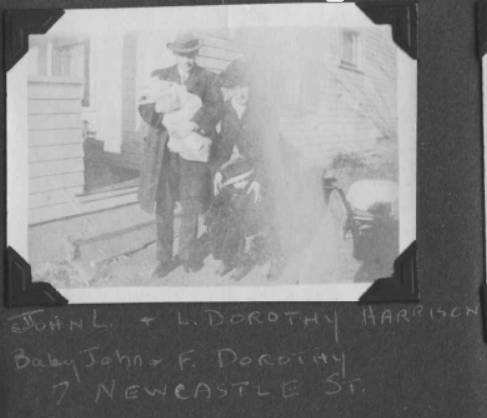 JOHN L. + L. DOROTHY HARRISON
Baby John + F. DOROTHY
7 NEWCASTLE ST.